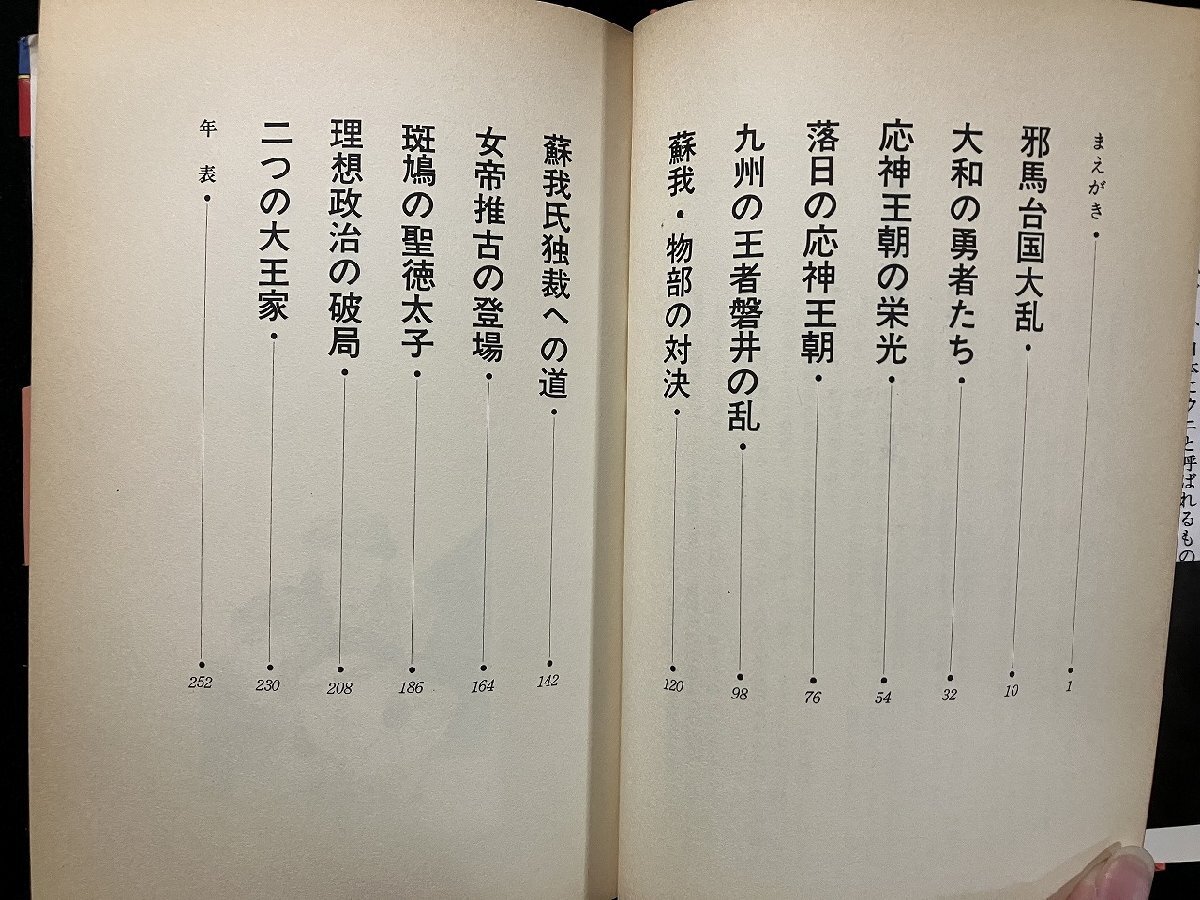 まえがき・ 1
邪馬台国大乱・ 10
大和の勇者たち・ 32
応神王朝の栄光・ 54
落日の応神王朝・ 76
九州の王者磐井の乱・ 98
蘇我・物部の対決・ 120
蘇我氏独裁への道・ 142
女帝推古の登場・ 164
斑鳩の聖徳太子・ 186
理想政治の破局・ 208
二つの大王家・ 230
年表・ 252
と呼ばれるもの